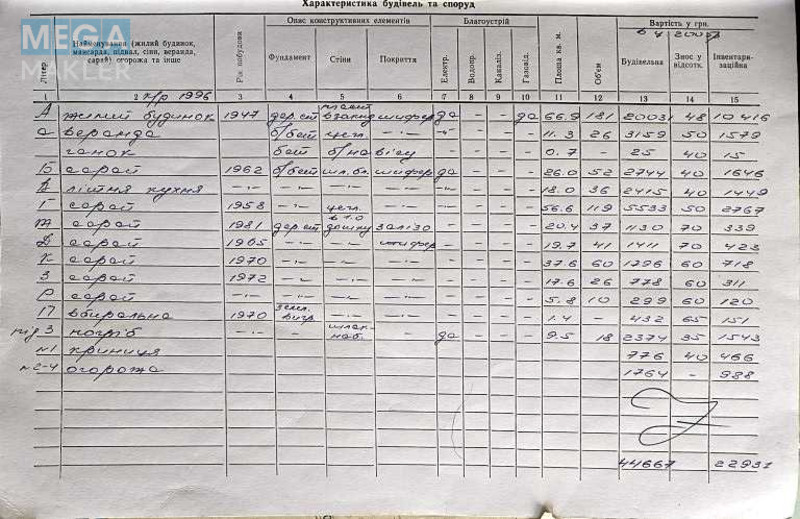 Характеристика будівель та споруд
MEGA
МАКЛЕР
Літер
Найменування (жилий будинок, мансарда, підвал, сіни, веранда, сарай) огорожа та інше
Рік побудови
Опис конструктивних елементів
Фундамент
Стіни
Покриття
Благоустрій
Електр.
Водопр.
Каналіз.
Газовід.
Площа кв. м.
Об'єм
Вартість у грн.
Будівельна
Зносу у відсотк.
Інвентаризаційна
1 2 3 4 5 6 7 8 9 10 11 12 13 14 15
к/р 1996
А жилий будинок 1947 дер. ст шифер да – – да 66.9 181 20031 48 10416
а веранда б/бет цегл. –·– –"– – – – 11.3 26 3159 50 1579
ганок бет б/навісу – – – – 0.7 – 25 40 15
Б сарай 1962 б/бет шл. бл. шифер да – – – 26.0 52 2744 40 1646
В літня кухня –·– –·– –·– –·– – – – – 18.0 36 2415 40 1449
Г сарай 1958 –·– цегл. –·– – – – – 56.6 119 5533 50 2767
Ж сарай 1981 дер. ст дошки залізо – – – – 20.4 37 1130 70 339
Д сарай 1965 –·– –·– шифер – – – – 19.7 41 1411 70 423
К сарай 1970 –·– –·– –·– – – – – 37.6 60 1796 60 718
З сарай 1972 –·– –·– –·– – – – – 17.6 26 778 60 311
Р сарай –·– –·– –·– –·– – – – – 5.8 10 299 60 120
П вбиральня 1970 –·– –·– – – – – 1.4 – 432 65 151
під З погріб –·– – шлак. наб. да – – – 9.5 18 2374 35 1543
№1 криниця 776 40 466
№2-4 огорожа 1764 – 988
44667 22931